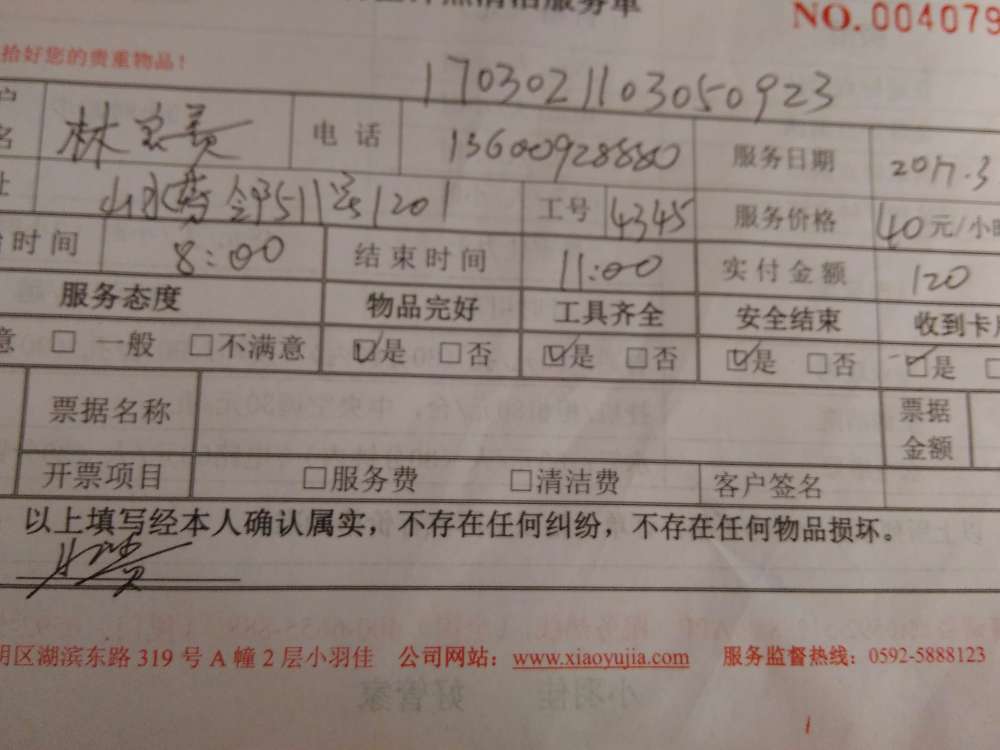 清洁服务单
NO. 004079
拾好您的贵重物品！
1703021103050923
名 林 电话 13600928880 服务日期 2017.3
址 山水 511 1201 工号 4345 服务价格 40元/小时
时间 8:00 结束时间 11:00 实付金额 120
服务态度 物品完好 工具齐全 安全结束 收到卡
意 □ 一般 □不满意 ☑是 □否 ☑是 □否 ☑是 □否 ☑是 □
票据名称 票据金额
开票项目 □服务费 □清洁费 客户签名
以上填写经本人确认属实，不存在任何纠纷，不存在任何物品损坏。
明区湖滨东路 319 号 A 幢 2 层小羽佳 公司网站：www.xiaoyujia.com 服务监督热线：0592-5888123
小羽佳 好管家